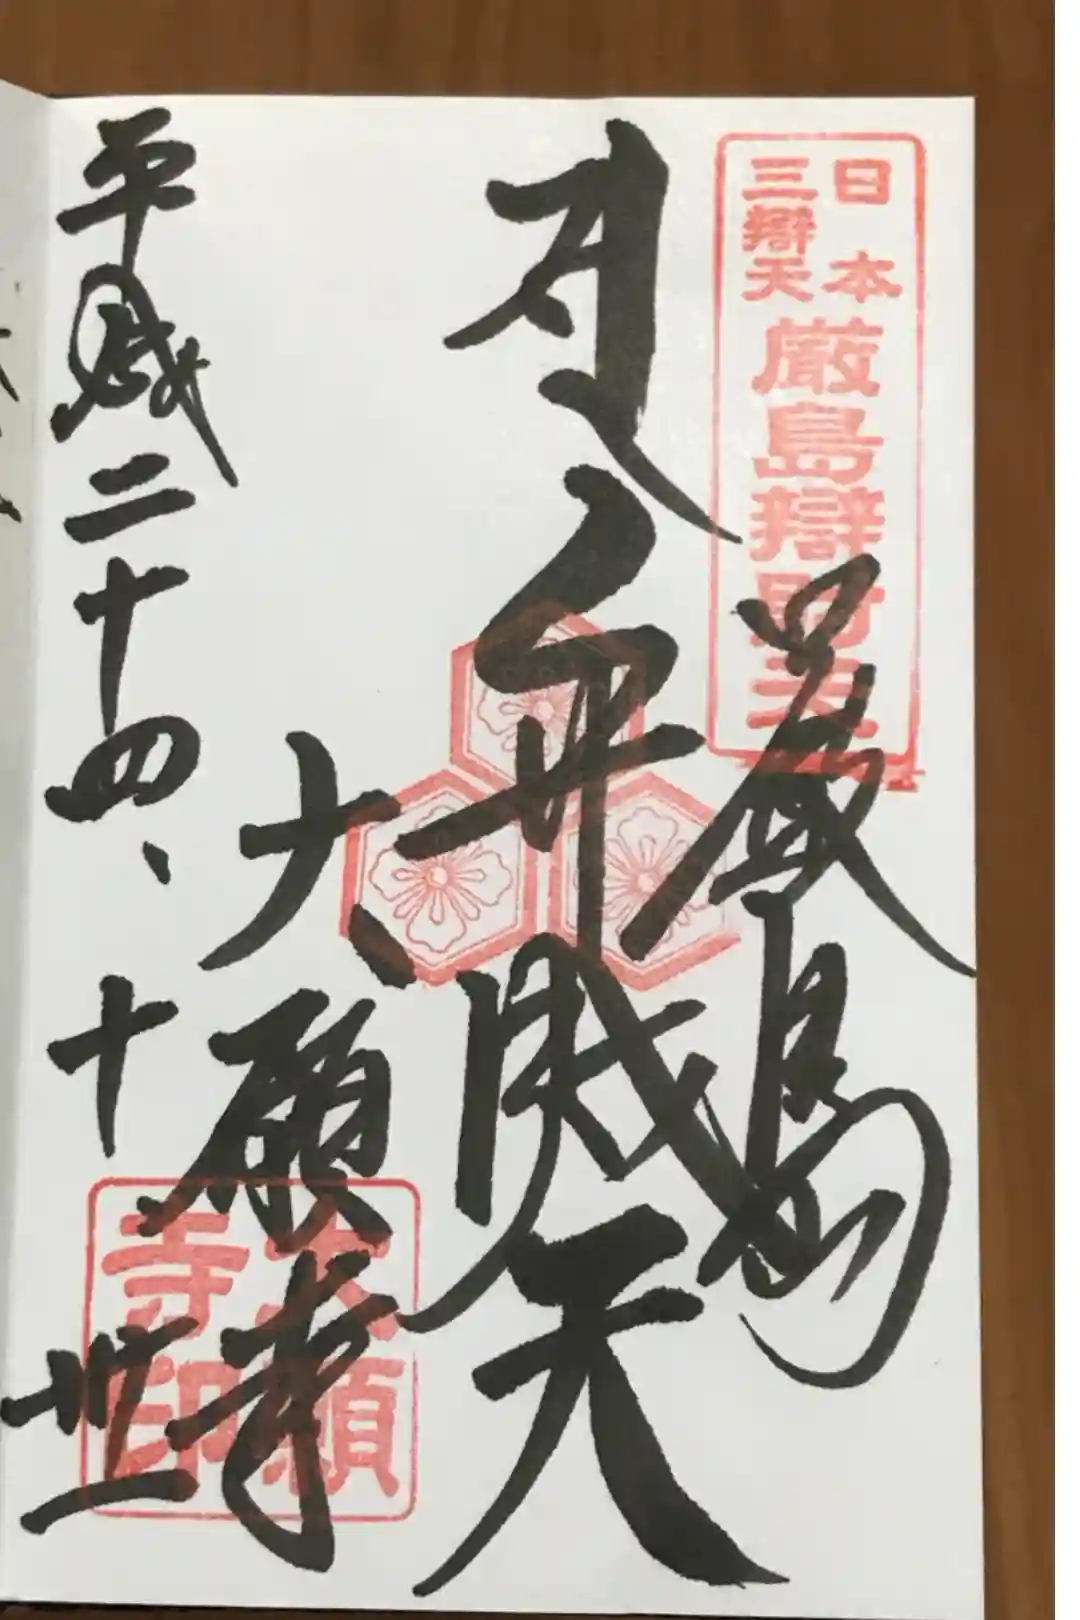 日本
三辯天
厳島辯財天
厳島
弁財天
大願寺
大願
寺印
平成二十四、十
卅一